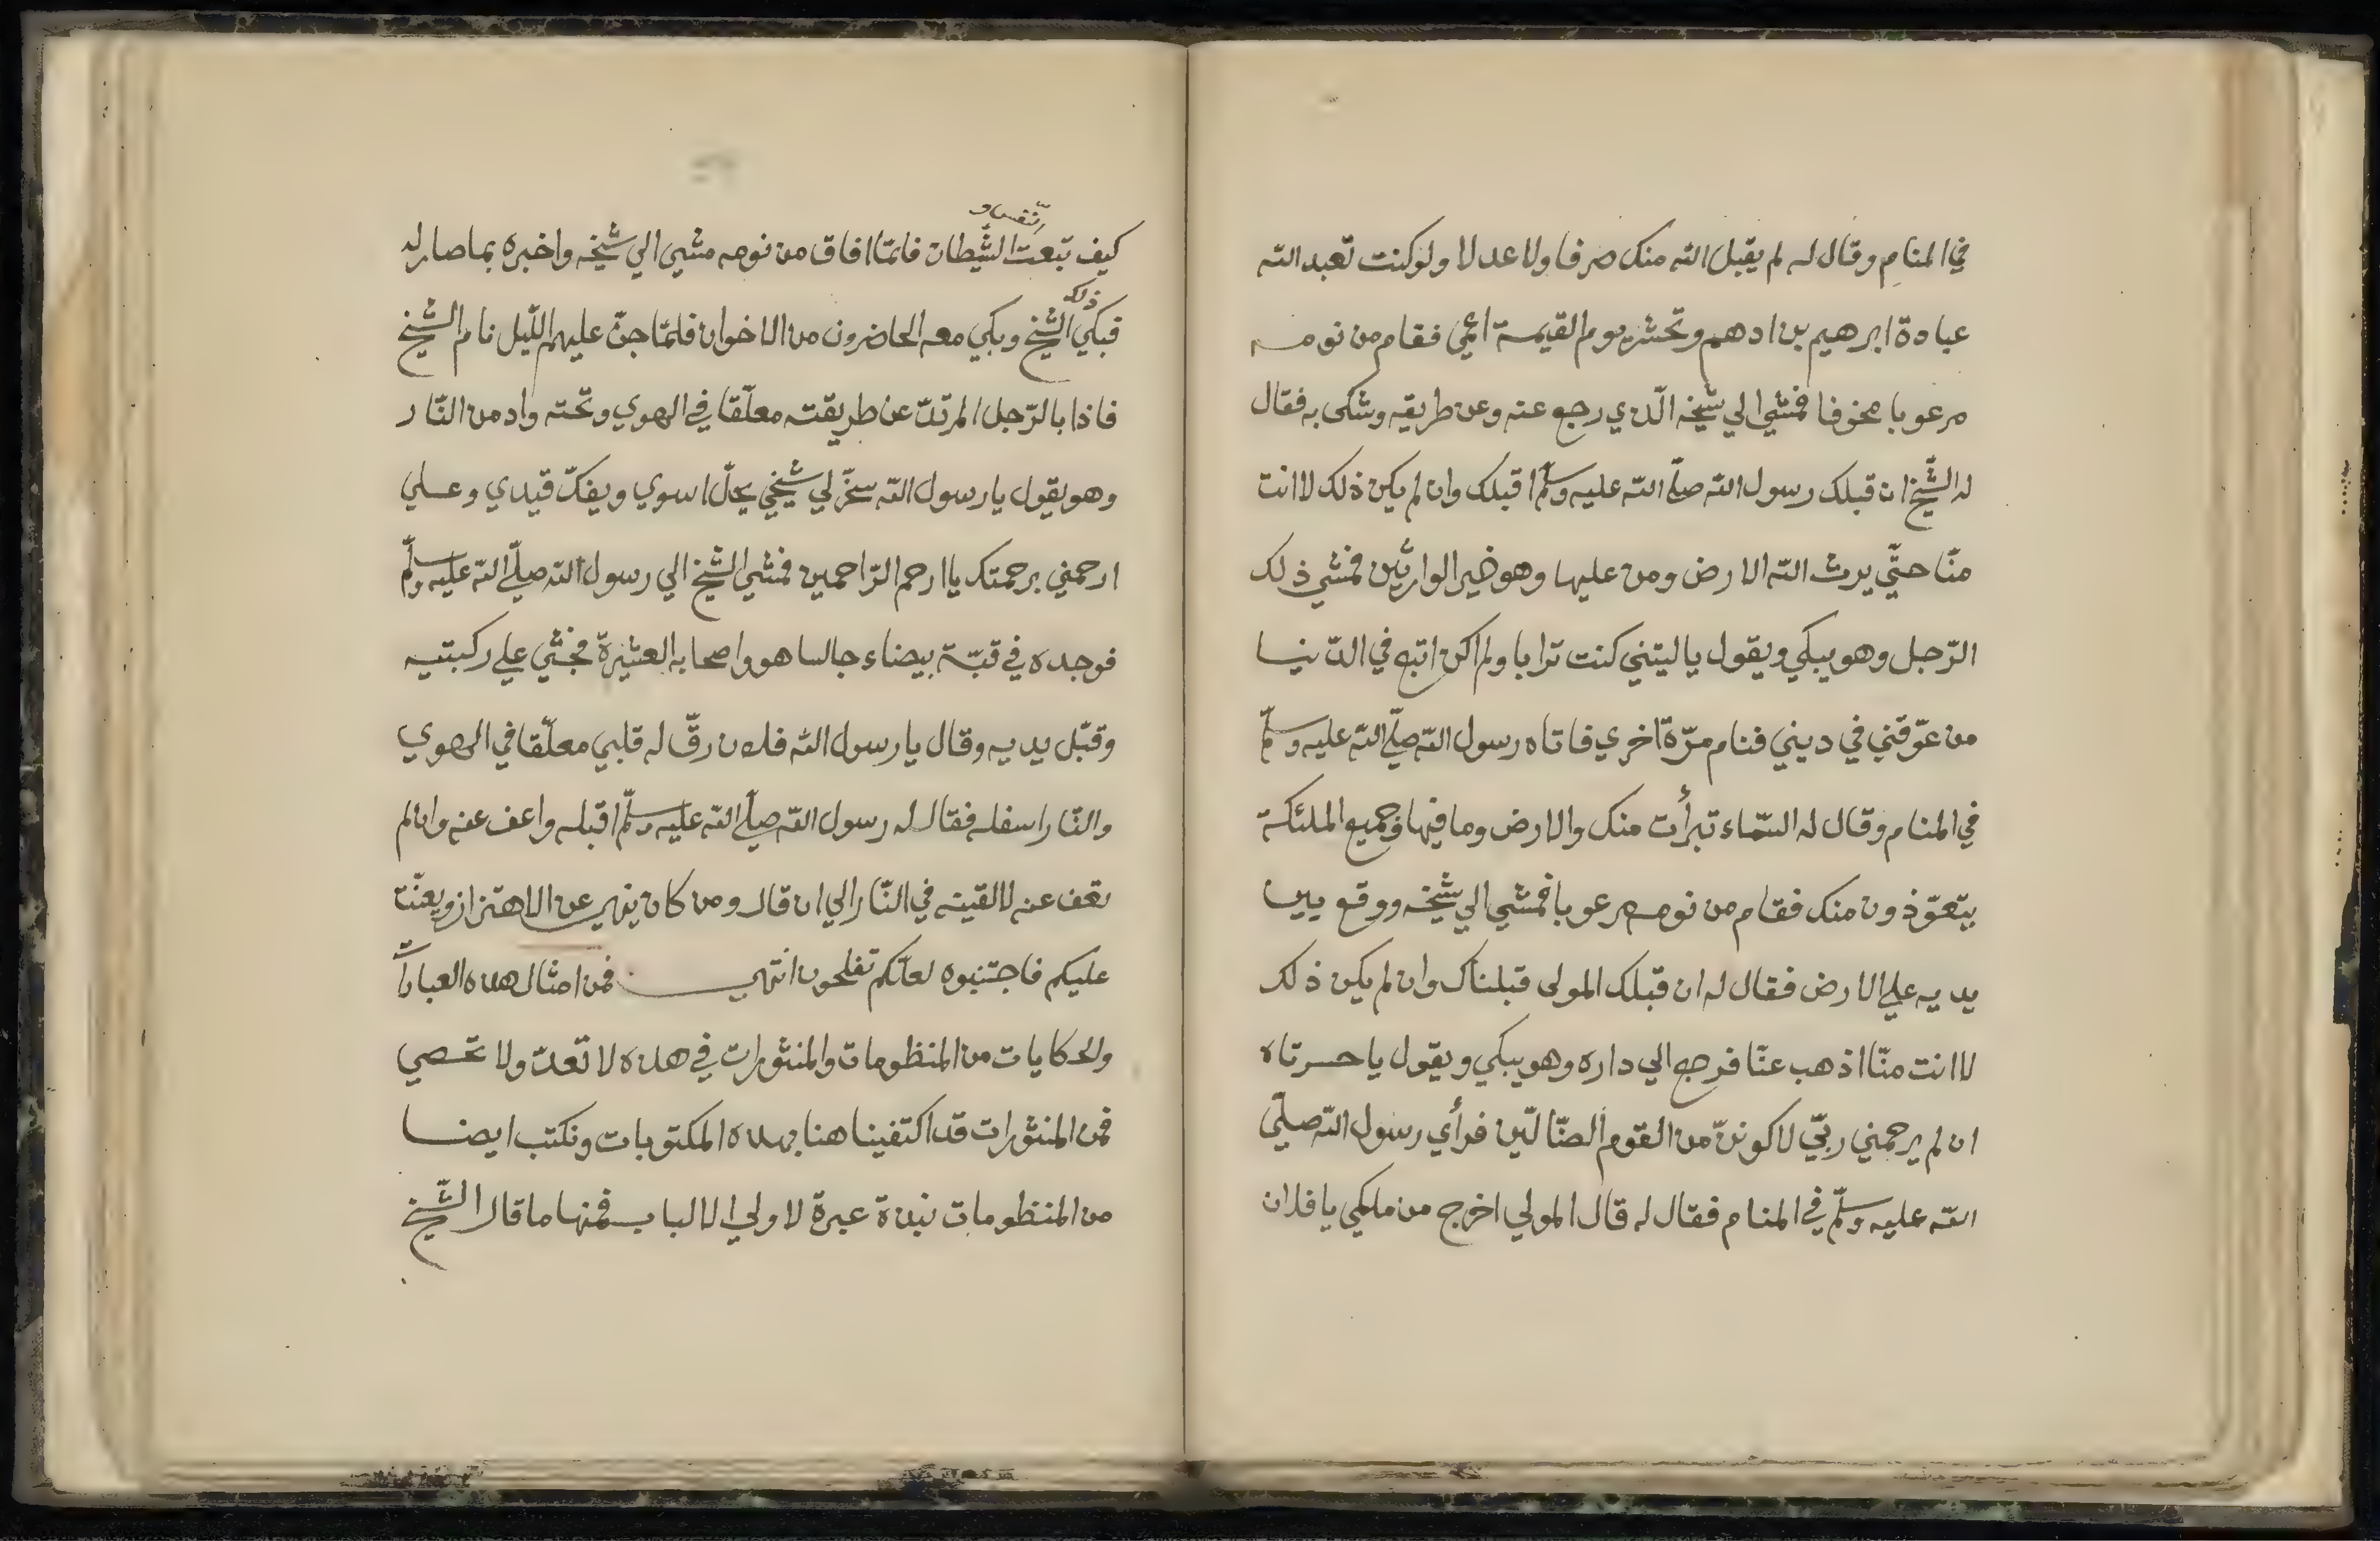 في المنام وقال له لم يقبل الله منك صرفا ولا عدلا ولو كنت تعبد الله
عبادة ابرهيم بن ادهم وتحشر يوم القيمة اعمي فقام من نومه
مرعوبا مخوفا فمشي الي شيخه الّذي رجع عنه وعن طريقه وشكى به فقال
له الشّيخ ان قبلك رسول الله صلّي الله عليه وسلّم اقبلك وان لم يكن ذلك لا انت
منّا حتّي يرث الله الارض ومن عليها وهو خير الوارثين فمشي ذلك
الرّجل وهو يبكي ويقول يا ليتني كنت ترابا ولم اكن اتبع في الدّنيا
من عوّقني في ديني فنام مرّة اخري فاتاه رسول الله صلّي الله عليه وسلّم
في المنام وقال له السّماء تبرأت منك والارض وما فيها وجميع الملئكة
يتعوّذون منك فقام من نومه مرعوبا فمشي الي شيخه ووقع بين
يديه علي الارض فقال له ان قبلك المولى قبلناك وان لم يكن ذلك
لا انت منّا اذهب عنّا فرجع الي داره وهو يبكي ويقول يا حسرتاه
ان لم يرحمني ربّي لاكوننّ من القوم الضّالّين فرأي رسول الله صلّي
الله عليه وسلّم في المنام فقال له قال المولي اخرج من ملكي يا فلان
كيف تبعت الشّيطان فلمّا افاق من نومه مشي الي شيخه واخبره بما صار له
ذلك
فبكي الشّيخ وبكي معه الحاضرون من الاخوان فلمّا جنّ عليهم اللّيل نام الشّيخ
فاذا بالرّجل المرتدّ عن طريقته معلّقا في الهوي وتحته واد من النّار
وهو يقول يا رسول الله سخّر لي شيخي يحلّ اسري ويفكّ قيدي وعسلي
ارحمني برحمتك يا ارحم الرّاحمين فمشي الشّيخ الي رسول الله صلّي الله عليه وسلّم
فوجده في قبّة بيضاء جالسا هو واصحابه العشرة فجثي علي ركبتيه
وقبّل يديه وقال يا رسول الله فلان رقّ له قلبي معلّقا في الهوي
والنّار اسفله فقال له رسول الله صلّي الله عليه وسلّم اقبله واعف عنه وان لم
تعف عنه لالقينه في النّار الي ان قال ومن كان ينهي عن الاهتزاز ويعنّت
عليكم فاجتنبوه لعلّكم تفلحون انتهي فمن امثال هذه العبارات
والحكايات من المنظومات والمنثورات في هذه لا تعدّ ولا تحصي
فمن المنثورات قد اكتفينا هنا بهذه المكتوبات ونكتب ايضا
من المنظومات نبذة عبرة لاولي الالباب فمنها ما قال الشّيخ